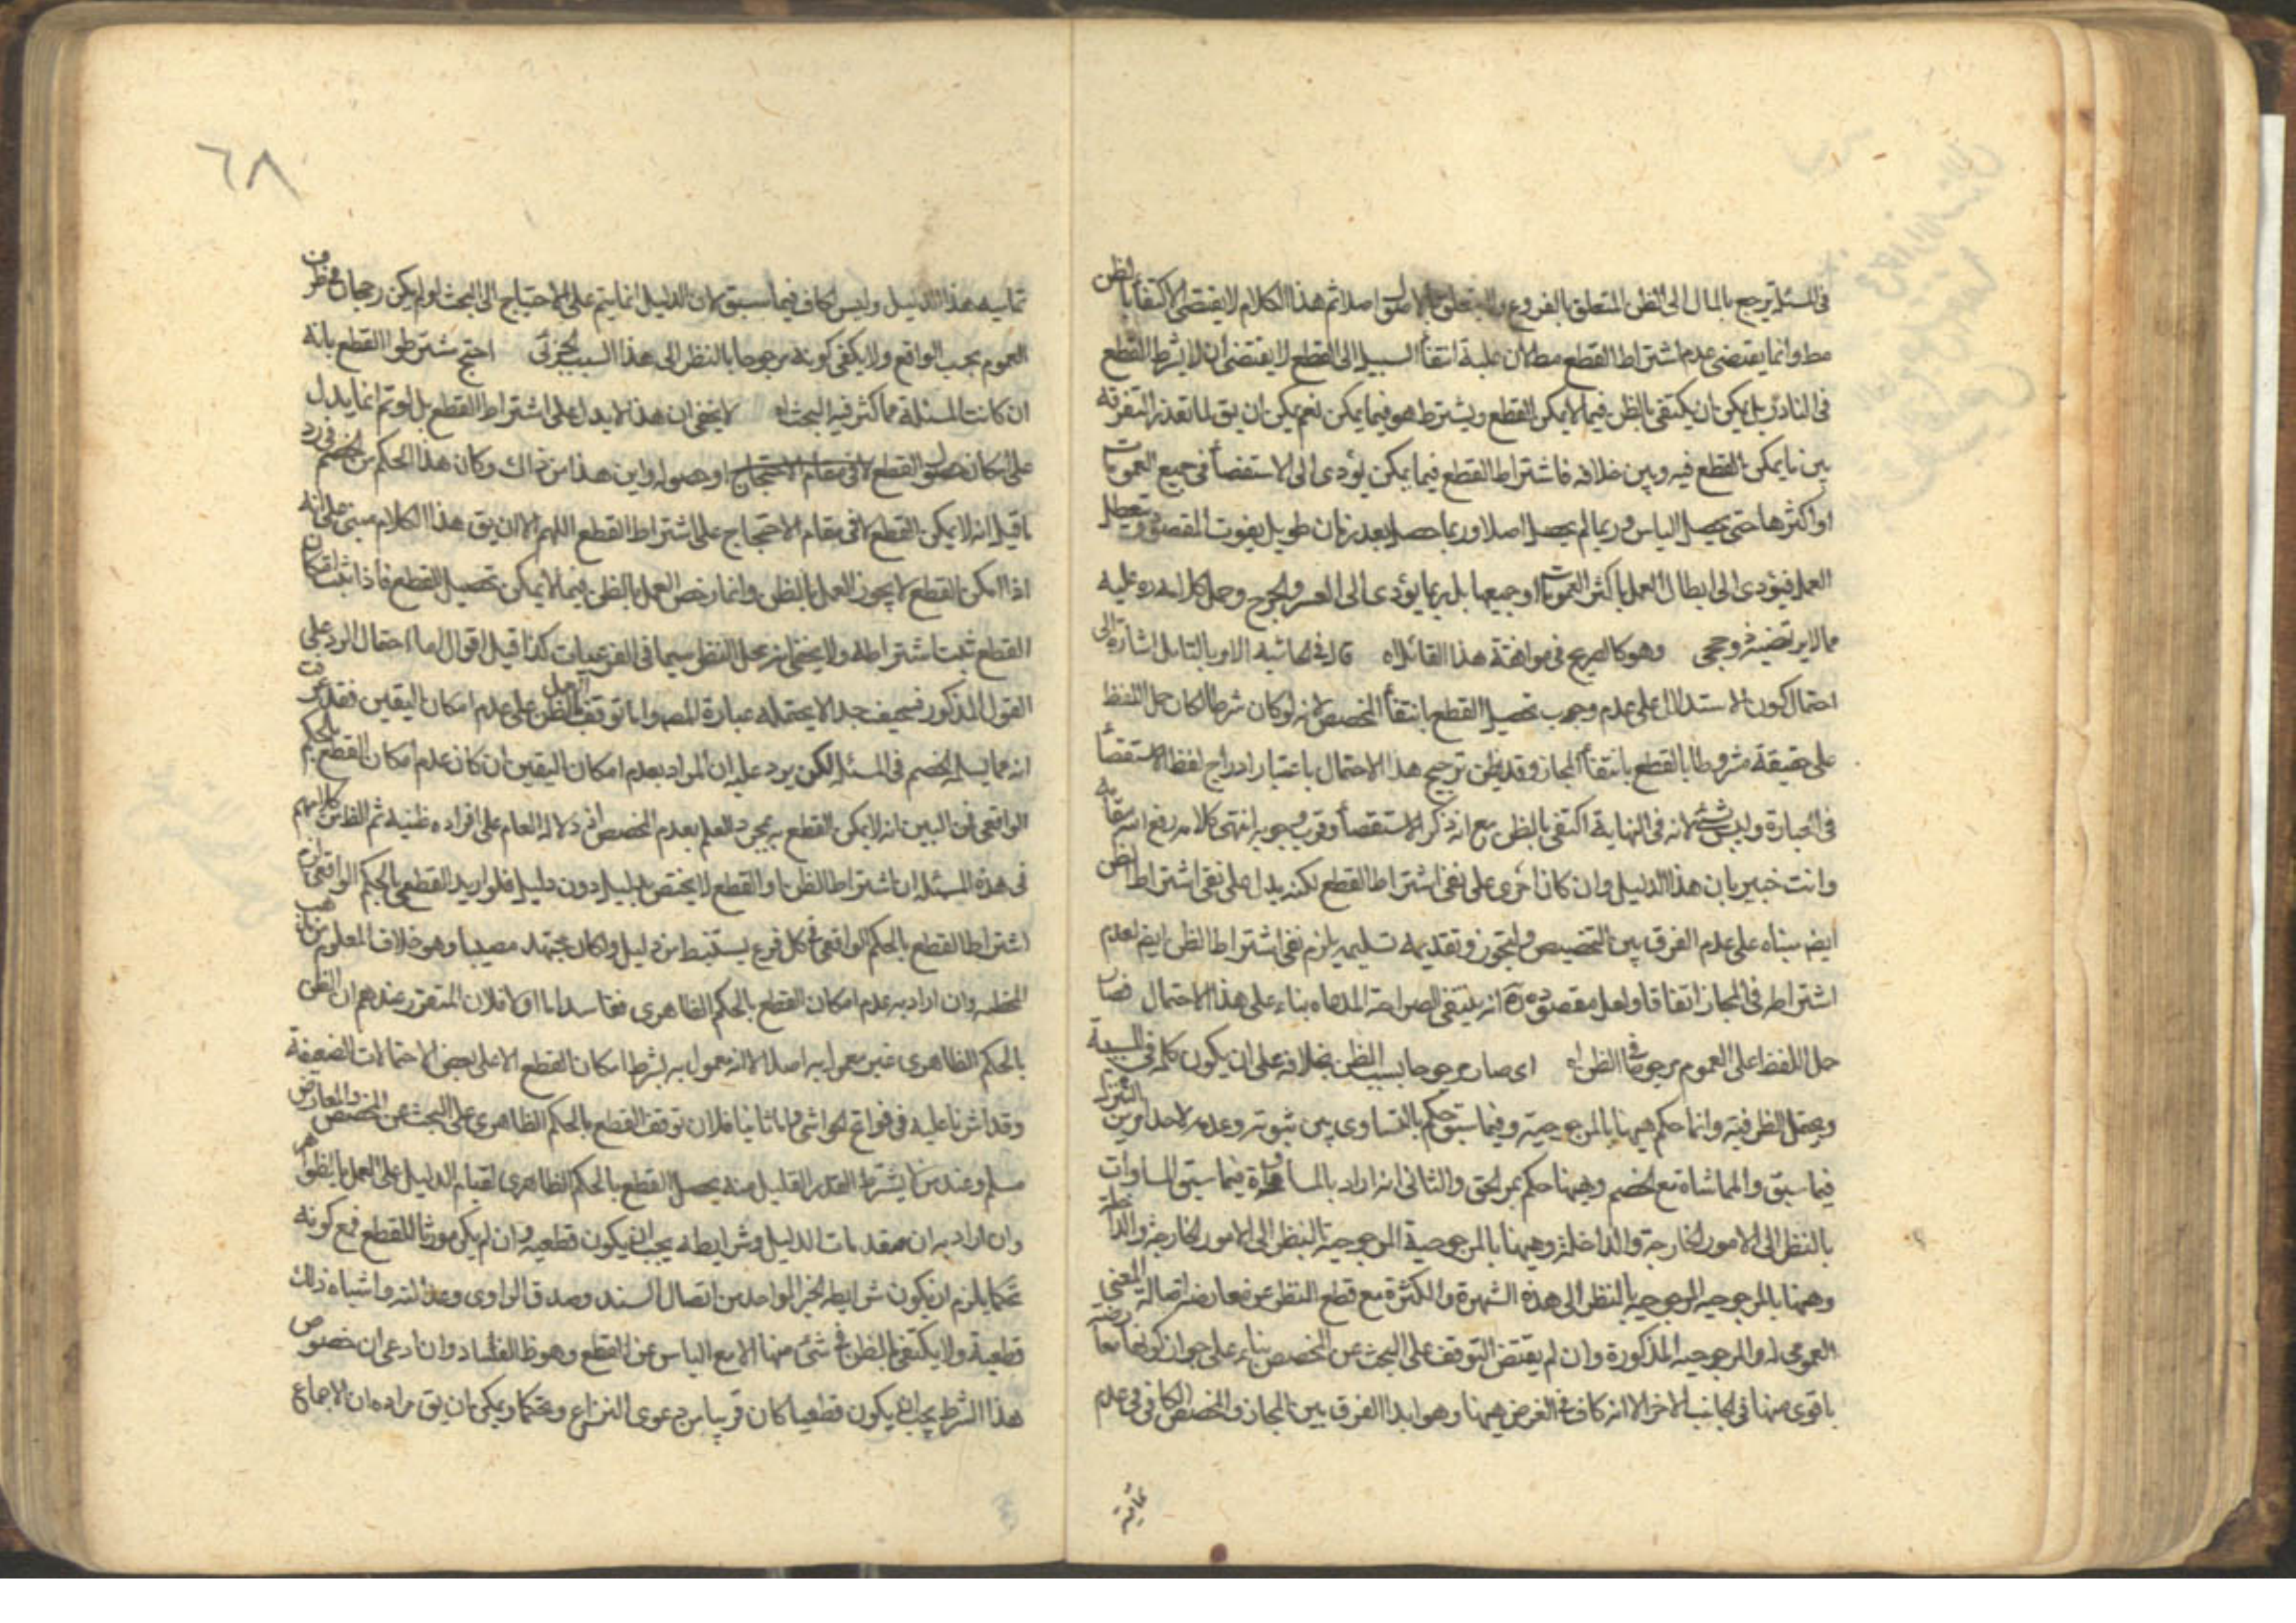 في المسئلة يرجع بالمال الى الظن المتعلق بالفروع اصلا ثم هذا الكلام لا يقتضي الاكتفاء بالظن
مط وانما يقتضي عدم اشتراط القطع مط لان علية انتفاء السبيل الى القطع لا يقتضي ان لا يشترط القطع
في النادر بل يمكن ان يكتفى بالظن فيما لا يمكن القطع ويشترط هو فيما يمكن نعم يمكن ان يق لما تعذر التفرقة
بين ما يمكن القطع فيه وبين خلافه فاشتراط القطع فيما يمكن يؤدى الى الاستقصاء في جميع العمومات
او اكثرها حتى يحصل الياس وربما لم يحصل اصلا وربما حصل بعد زمان طويل يفوت المقصود ويتعطل
العمل فيؤدى الى ابطال العمل باكثر العمومات او جميعها بل ربما يؤدى الى العسر والحرج وحمل كلامه ره عليه
مما لا يرتضيه ذو حجى وهو كالصريح في موافقة هذا القائل اه قال في الحاشية الامر بالتامل اشارة الى
احتمال كون الاستدلال على عدم وجوب تحصيل القطع بانتفاء المخصص لانه لو كان شرطا لكان حمل اللفظ
على حقيقة مشروطا بالقطع بانتفاء المجاز وقد يظن ترجيح هذا الاحتمال باعتبار ادراج لفظ الاستقصاء
في العبارة وليس بشئ لانه في النهاية اكتفى بالظن مع انه ذكر الاستقصاء وقرب وجوبه انتهى كلامه رفع الله مقامه
وانت خبير بان هذا الدليل وان كان اجرى على نفى اشتراط القطع لكنه يدل على نفى اشتراط الظن
ايض بناه على عدم الفرق بين التخصيص والتجوز وتقديمه تسليمه يلزم نفى اشتراط الظن ايض لعدم
اشتراطه في المجاز اتفاقا ولعل مقصوده ره انه ينتفى الصراحة المدعاه بناء على هذا الاحتمال فصار
حمل اللفظ على العموم مرجوحا في الظن اه اى صار مرجوحا بسبب الظن بخلافه على ان يكون كلمة في للسببية
ويحتمل الظرفية وانما حكم هيهنا بالمرجوحية وفيما سبق حكم بالتساوى بين ثبوته وعدمه لاحد امرين التنزل
فيما سبق والمماشاة مع الخصم وهيهنا حكم بمر الحق والثانى انه اراد بالمساواة فيما سبق المساوات
بالنظر الى الامور الخارجة والداخلة وهيهنا بالمرجوحية المرجوحية بالنظر الى الامور الخارجة والداخلة
وهيهنا بالمرجوحيه المرجوحيه بالنظر الى هذه الشهرة والكثرة مع قطع النظر عن معارضة اصالة المعنى
العمومى له والمرجوحيه المذكورة وان لم يقتض التوقف على البحث عن المخصص بناء على جواز كونها معارضة
باقوى منها في الجانب الاخر الا انه كاف في الغرض هيهنا وهو ابدا الفرق بين المجاز والمخصص الكافى في عدم
تمامية
٦٨
تماميه هذا الدليل وليس كاف فيما سبق لان الدليل انما يتم على الاحتياج الى البحث لو لم يكن رجحان في طرف
العموم بحسب الواقع ولا يكفى كونه مرجوحا بالنظر الى هذا السبب الجزئى احتج مشترطوا القطع بانه
ان كانت المسئلة مما كثر فيه البحث اه لا يخفى ان هذا لا يدل على اشتراط القطع بل لو تم انما يدل
على امكان حصول القطع لا في مقام الاحتجاج او حصوله واين هذا من ذاك وكان هذا الحكم من الخصم في رد
ما قيل انه لا يمكن القطع لا في مقام الاحتجاج على اشتراط القطع اللهم الا ان يق هذا الكلام مبنى على انه
اذا امكن القطع لا يجوز العمل بالظن وانما رخص العمل بالظن فيما لا يمكن تحصيل القطع فاذا ثبت امكان
القطع ثبت اشتراطه ولا يخفى انه محل النظر سيما في الفرعيات كذا قيل اقول اما احتمال الرد على
القول المذكور فسخيف جدا لا يحتمله عبارة المصـ واما توقف العمل بالظن على عدم امكان اليقين فقد عرفت
انه مما يسلمه الخصم في المسئلة لكن يرد عليه ان المراد بعدم امكان اليقين ان كان عدم امكان القطع بالحكم
الواقعى فمن البين انه لا يمكن القطع به بمجرد العلم بعدم المخصص اذ دلالة العام على افراده ظنية ثم الظ من كلامهم
في هذه المسئلة ان اشتراط الظن او القطع لا يختص بدليل دون دليل فلو اريد القطع بالحكم الواقعى لزم
اشتراط القطع بالحكم الواقعى في كل فرع يستنبط من دليل ولكان كل مجتهد مصيبا وهو خلاف المعلوم من مذهب
المخطئه وان اراد به عدم امكان القطع بالحكم الظاهرى ففاسد اما اولا فلان المتقرر عندهم ان الظن
بالحكم الظاهرى غير معمول به اصلا لا انه معمول به بشرط امكان القطع الا على بعض الاحتمالات الضعيفة
وقد اشرنا عليه في فواتح الحواشى واما ثانيا فلان توقف القطع بالحكم الظاهرى على البحث عن المخصص والمعارض
مسلم وعند من يشترط القدر القليل منه يحصل القطع بالحكم الظاهرى لقيام الدليل على العمل بالظواهر
وان اراد به ان مقدمات الدليل وشرايطه يجب ان يكون قطعية وان لم يكن مورثا للقطع فمع كونه
تحكما يلزم ان يكون شرايط الخبر الواحد من اتصال السند وصدق الراوى وعدالته واشباه ذلك
قطعية ولا يكتفى بالظن في شئ منها الا مع الياس عن القطع وهو ظ الفساد وان ادعى ان خصوص
هذا الشرط يجب ان يكون قطعيا كان قريبا من دعوى النزاع وتحكما ويمكن ان يق مراده ان الاجماع